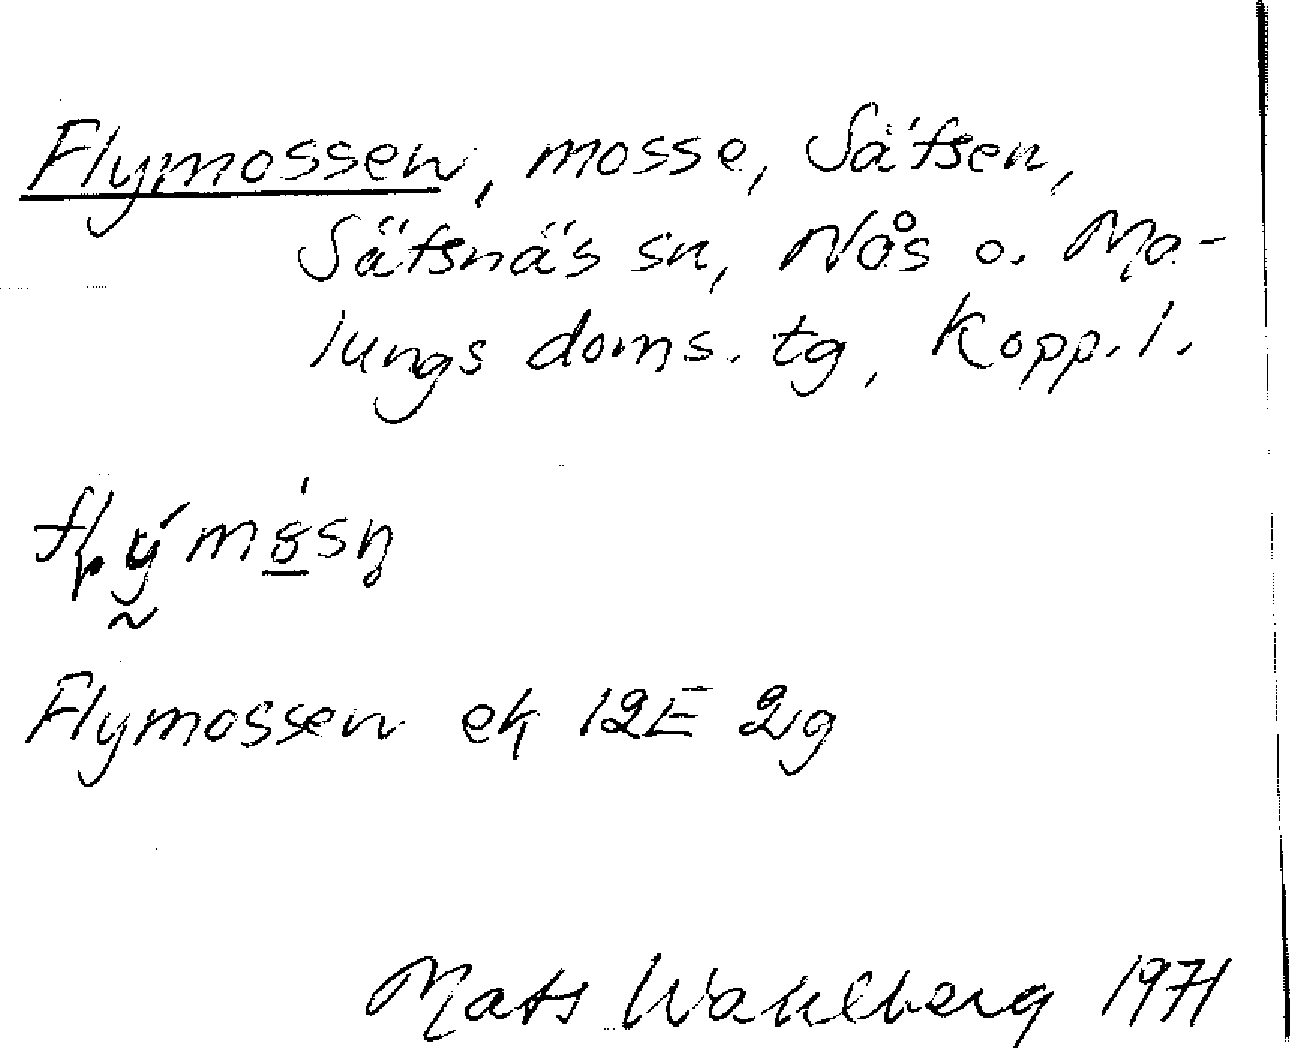 Flymossen, mosse, Sätsen,
Sätsnäs sn, Nås o. Ma-
lungs doms. tg, Kopp. l.
Flymossen ek 12E 2g
Mats Wahlberg 1971